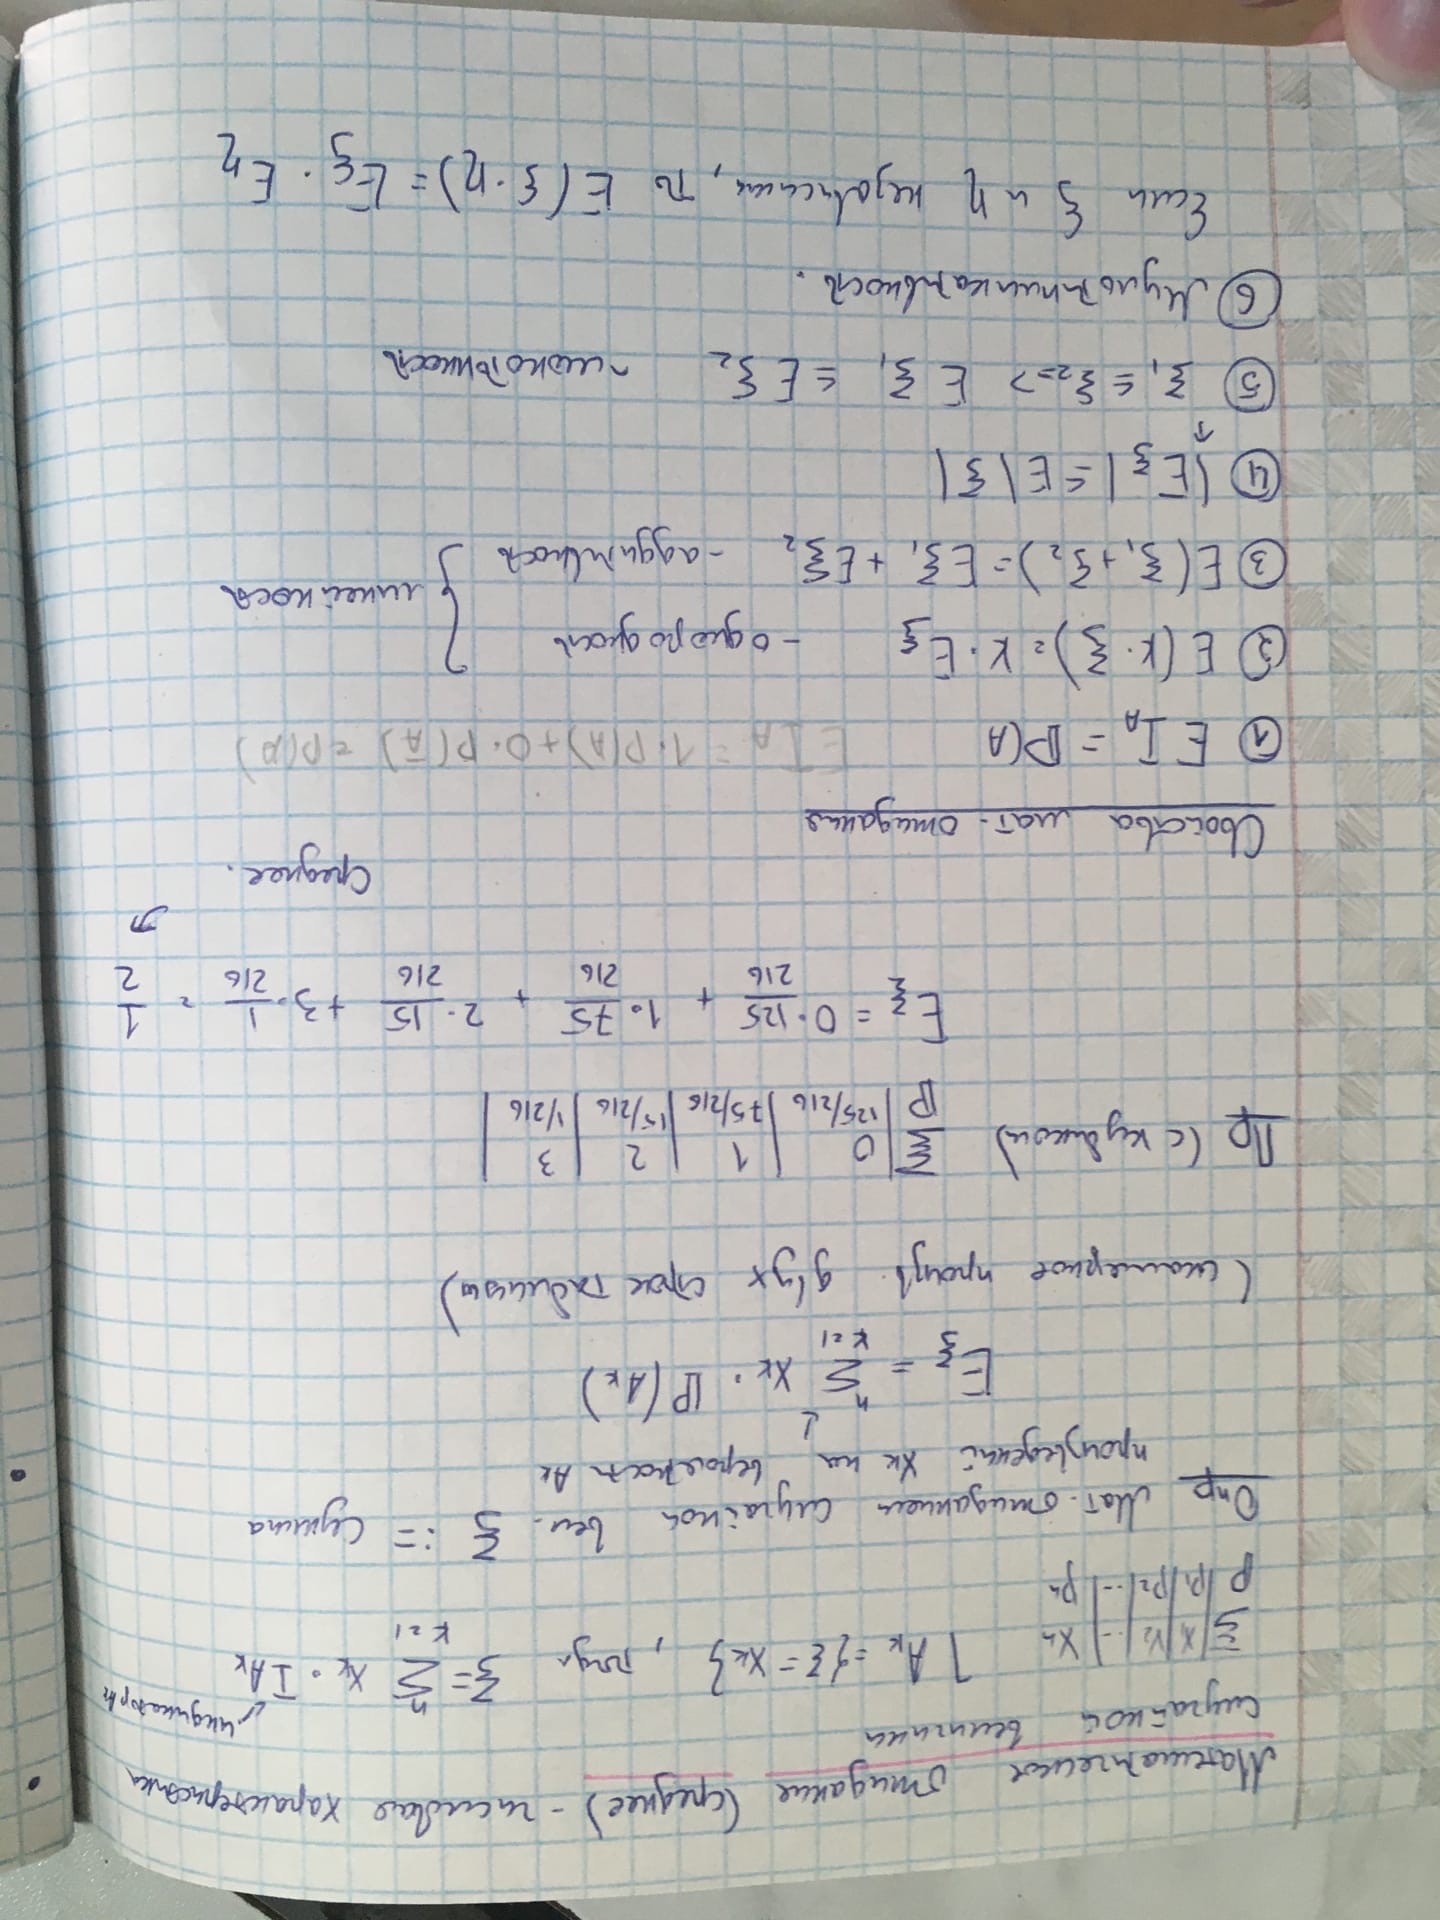 Математическое ожидание (среднее) - числовая характеристика
случайной величины
индикатор Ak
ξ | x₁ | x₂ | ... | xn
P | p₁ | p₂ | ... | pn
] Ak = {ξ = xk}, тогда ξ = Σ_{k=1}^{n} xk · I Ak
Опр Мат. ожиданием случайной вел. ξ := сумма
произведений xk на вероятность Ak
Eξ = Σ_{k=1}^{n} xk · ℙ(Ak)
(скалярное произв. двух строк таблицы)
Пр (с кубиком) ξ | 0 | 1 | 2 | 3 |
ℙ | 125/216 | 75/216 | 15/216 | 1/216 |
Eξ = 0 · 125/216 + 1 · 75/216 + 2 · 15/216 + 3 · 1/216 = 1/2
Среднее.
Свойства мат. ожидания
① E I_A = ℙ(A E I_A = 1·P(A) + 0·P(Ā) = P(A)
② E(k·ξ) = k·Eξ - однородность
линейность
③ E(ξ₁ + ξ₂) = Eξ₁ + Eξ₂ - аддитивность
④ |Eξ| ≤ E|ξ|
⑤ ξ₁ ≤ ξ₂ => Eξ₁ ≤ Eξ₂ - монотонность
⑥ Мультипликативность.
Если ξ и η независимы, то E(ξ·η) = Eξ · Eη